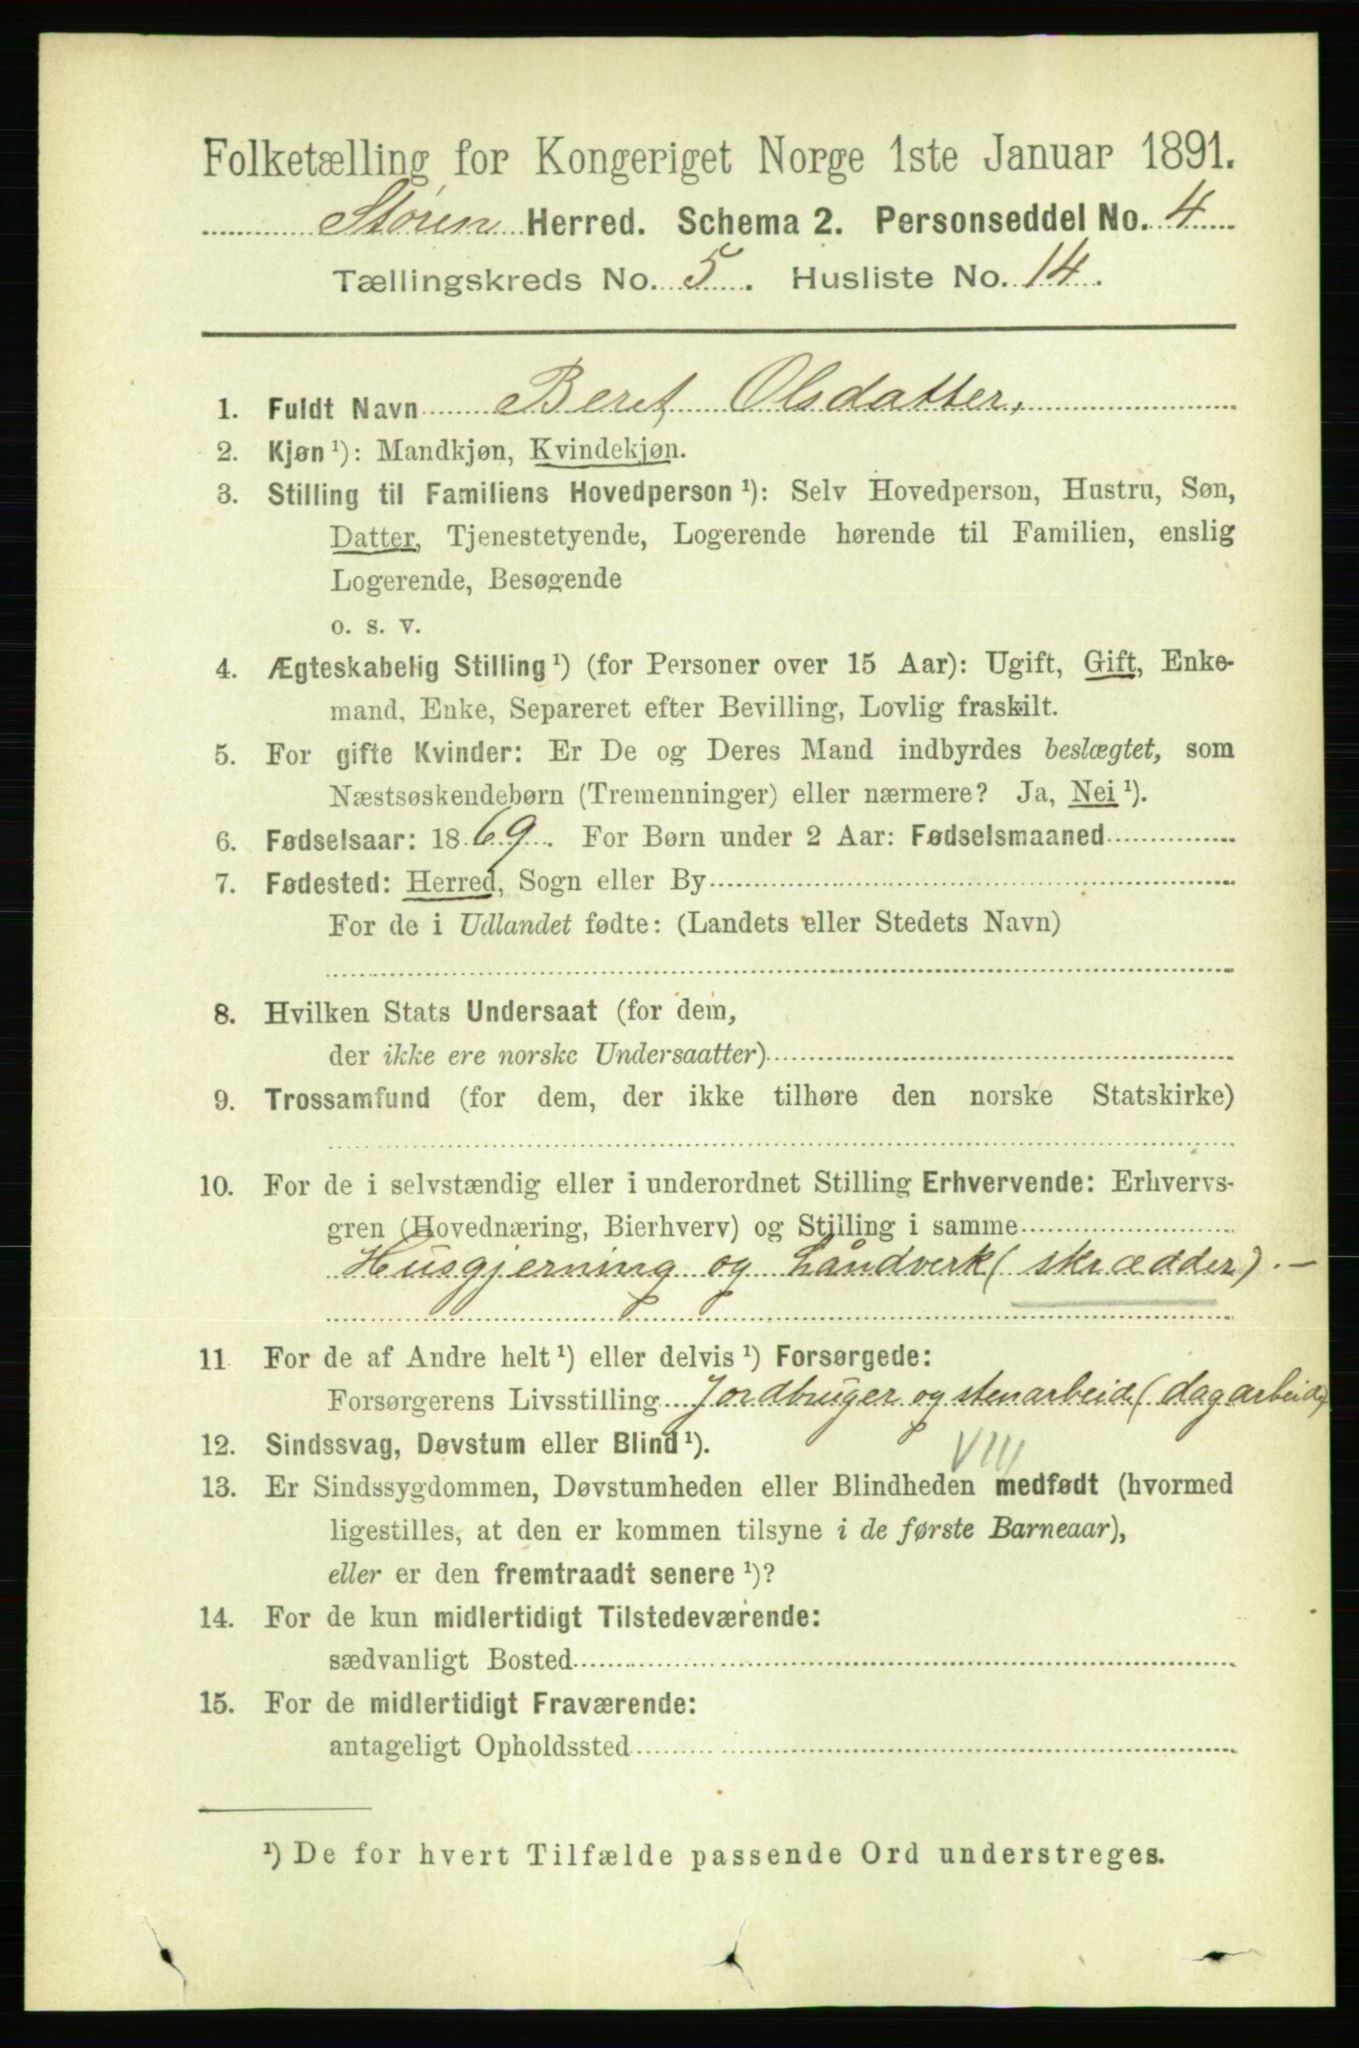 Folketælling for Kongeriget Norge 1ste Januar 1891.
Støren Herred. Schema 2. Personseddel No. 4
Tællingskreds No. 5. Husliste No. 14.
1. Fuldt Navn Beret Olsdatter,
2. Kjøn ¹): Mandkjøn, Kvindekjøn.
3. Stilling til Familiens Hovedperson ¹): Selv Hovedperson, Hustru, Søn,
Datter, Tjenestetyende, Logerende hørende til Familien, enslig
Logerende, Besøgende
o. s. v.
4. Ægteskabelig Stilling ¹) (for Personer over 15 Aar): Ugift, Gift, Enke-
mand, Enke, Separeret efter Bevilling, Lovlig fraskilt.
5. For gifte Kvinder: Er De og Deres Mand indbyrdes beslægtet, som
Næstsøskendebørn (Tremenninger) eller nærmere? Ja, Nei ¹).
6. Fødselsaar: 1869. For Børn under 2 Aar: Fødselsmaaned
7. Fødested: Herred, Sogn eller By
For de i Udlandet fødte: (Landets eller Stedets Navn)
8. Hvilken Stats Undersaat (for dem,
der ikke ere norske Undersaatter)
9. Trossamfund (for dem, der ikke tilhøre den norske Statskirke)
10. For de i selvstændig eller i underordnet Stilling Erhvervende: Erhvervs-
gren (Hovednæring, Bierhverv) og Stilling i samme
Husgjerning og håndverk (skrædder). —
11 For de af Andre helt ¹) eller delvis ¹) Forsørgede:
Forsørgerens Livsstilling Jordbruger og stenarbeide (dagarbeide)
12. Sindssvag, Døvstum eller Blind ¹).
VIII
13. Er Sindssygdommen, Døvstumheden eller Blindheden medfødt (hvormed
ligestilles, at den er kommen tilsyne i de første Barneaar),
eller er den fremtraadt senere ¹)?
14. For de kun midlertidigt Tilstedeværende:
sædvanligt Bosted
15. For de midlertidigt Fraværende:
antageligt Opholdssted
¹) De for hvert Tilfælde passende Ord understreges.